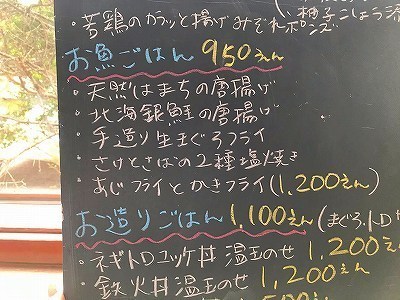 ・若鶏のカラッと揚げみぞれポンズ
(柚子こしょう添
お魚ごはん 950えん
・天然はまちの唐揚げ
・北海銀鮭の唐揚げ
・手造り生まぐろフライ
・さけとさばの2種塩焼き
・あじフライとかきフライ(1,200えん)
お造りごはん 1,100えん (まぐろ、トロサ
・ネギトロユッケ丼 温玉のせ 1,200え
・鉄火丼温玉のせ 1,200えん